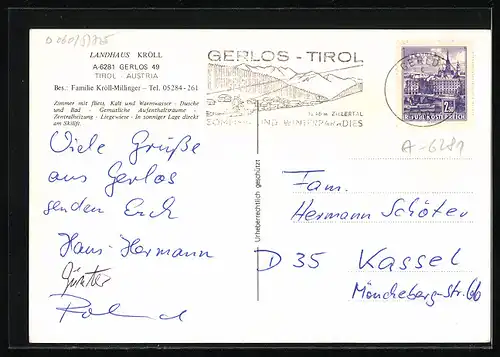 LANDHAUS KRÖLL
A-6281 GERLOS 49
TIROL - AUSTRIA
Bes.: Familie Kröll-Millinger - Tel. 05284-261
Zimmer mit fließ. Kalt und Warmwasser - Dusche
und Bad - Gemütliche Aufenthaltsräume -
Zentralheizung - Liegewiese - In sonniger Lage direkt
am Skilift.
GERLOS - TIROL
ZILLERTAL
SOMMER- UND WINTERPARADIES
REPUBLIK ÖSTERREICH
A-6281
Urheberrechtlich geschützt
Viele Grüße
aus Gerlos
senden Euch
Hans-Hermann
Günther
Roland
Fam.
Hermann Schöter
D 35 Kassel
Mönchebergstr. 66